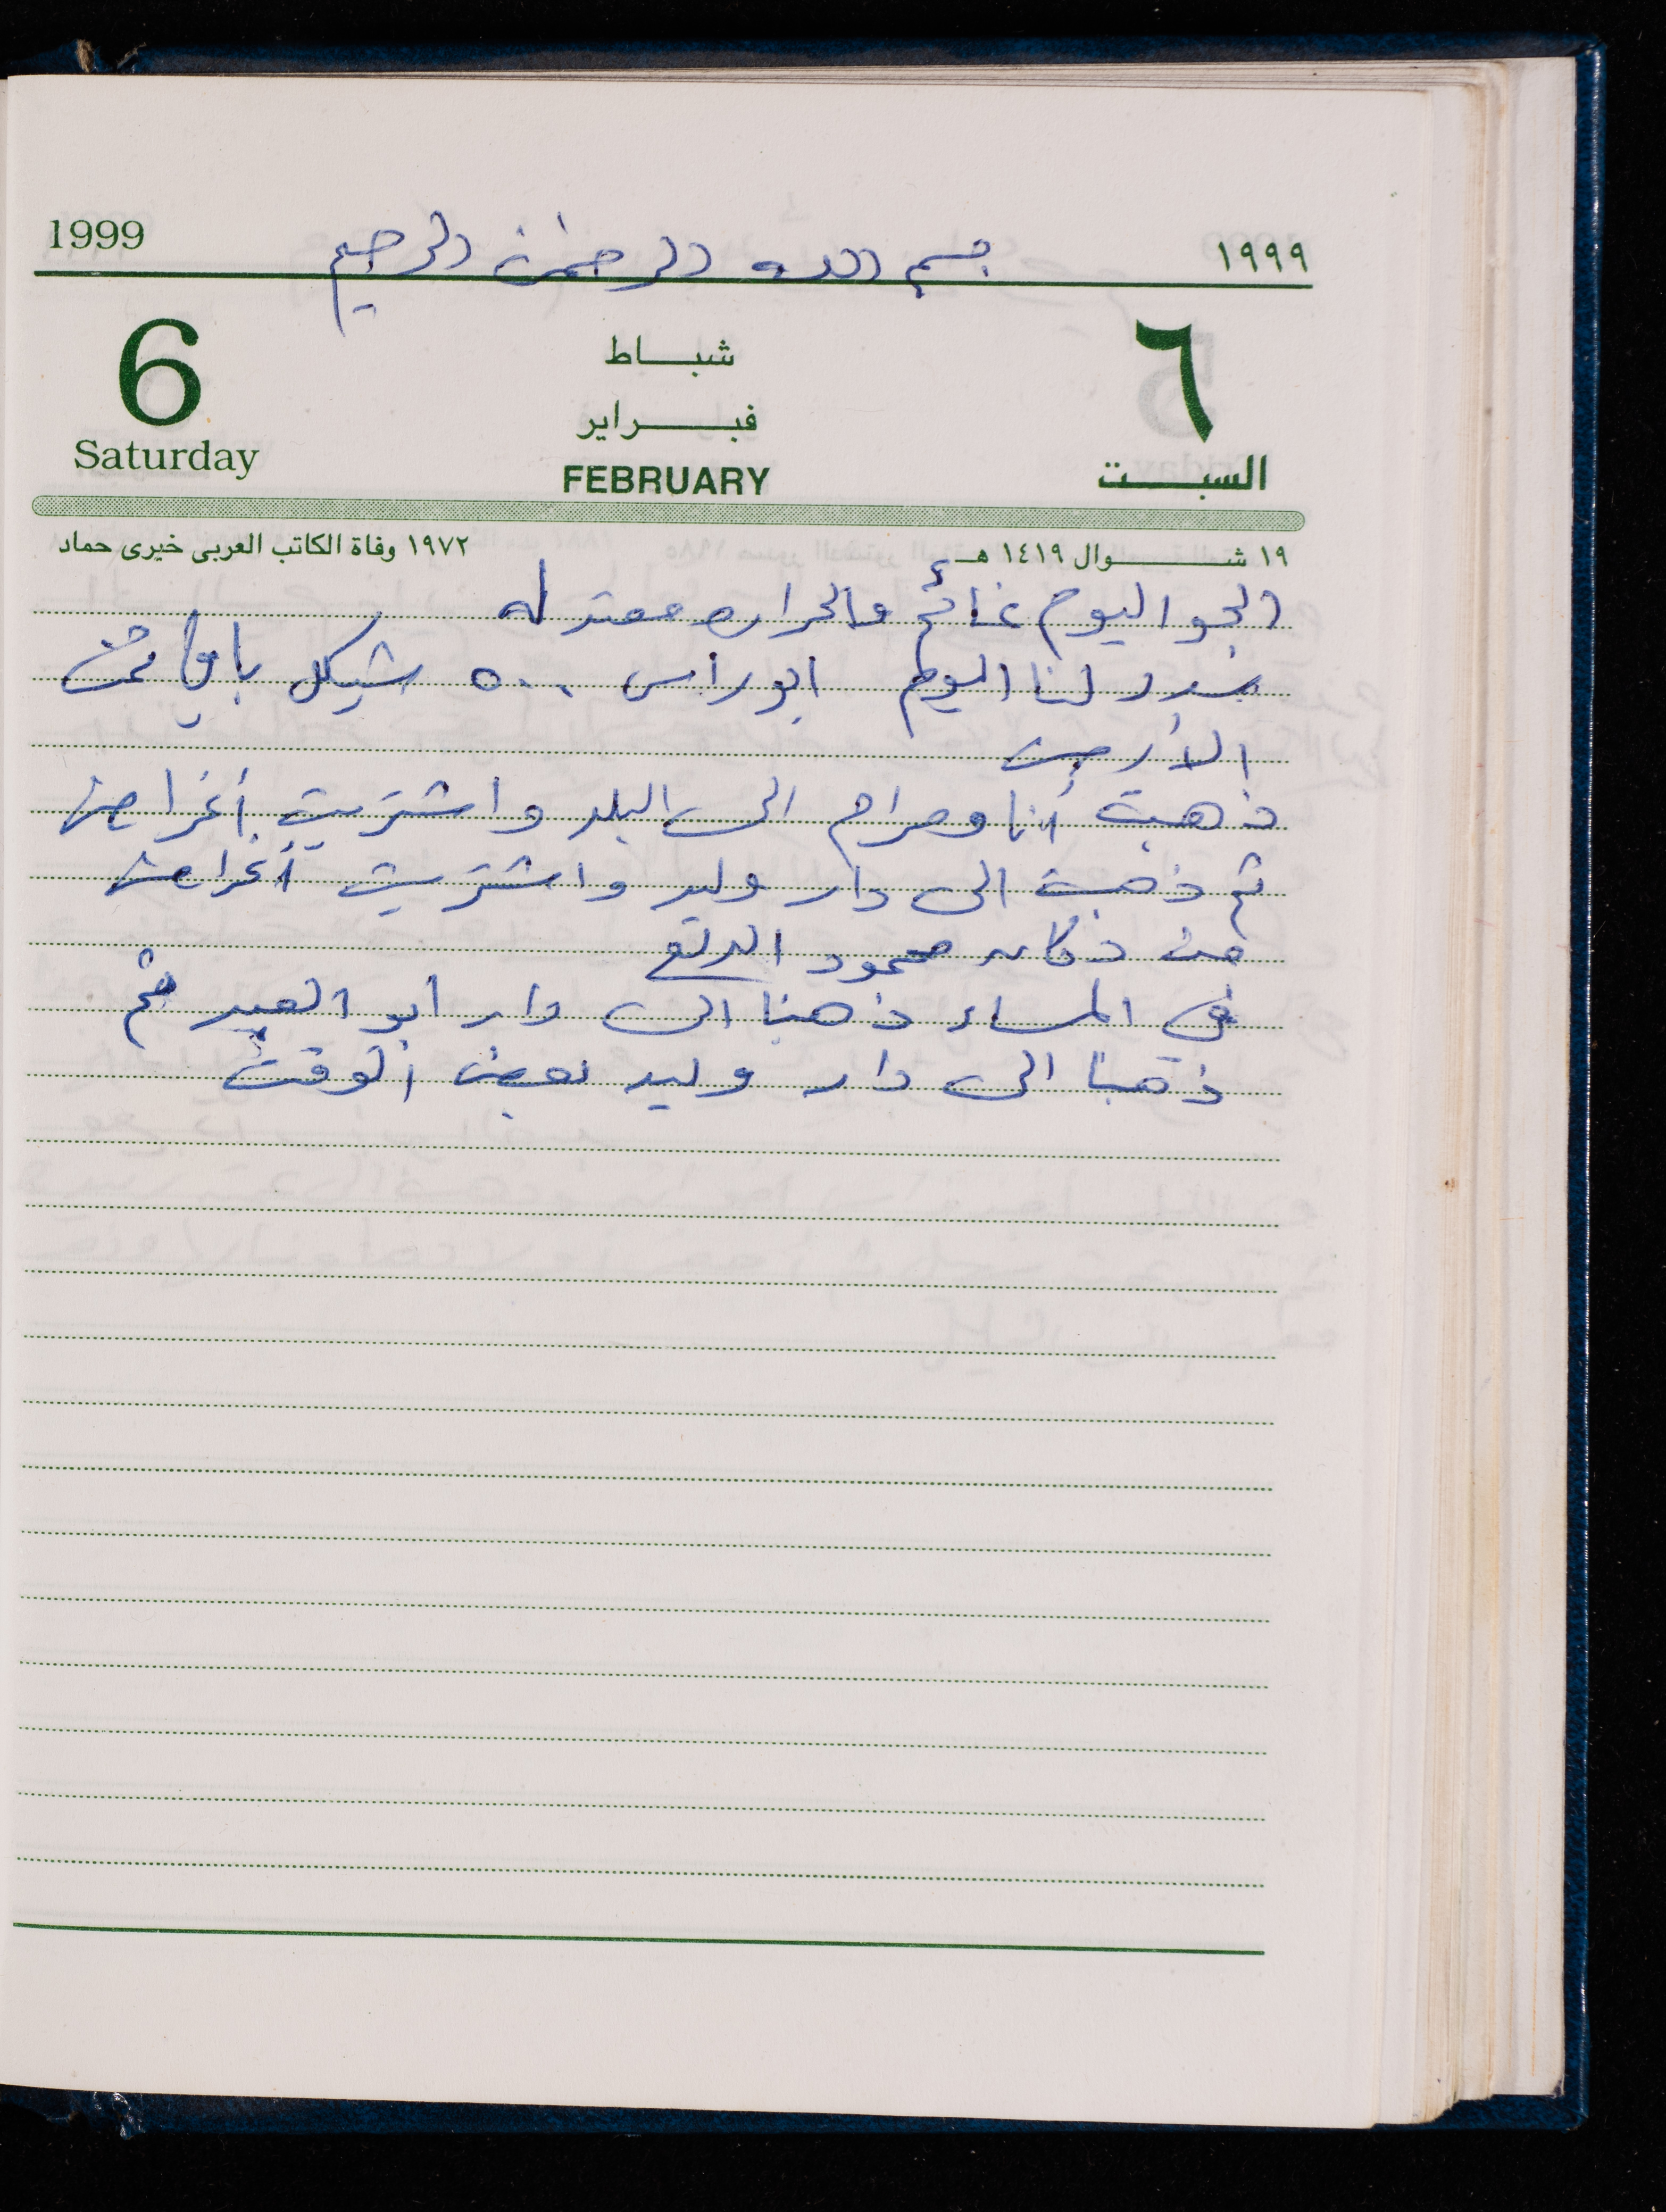 1999 بسم الله الرحمن الرحيم ١٩٩٩
6 شباط ٦
فبراير
Saturday FEBRUARY السبت
١٩ شوال ١٤١٩ هـ ١٩٧٢ وفاة الكاتب العربى خيرى حماد
الجو اليوم غائم والحراره معتدله
سدد لنا اليوم ابو راس ٥٠٠ شيكل باقي ثمن
الأرض
ذهبت أنا ومرام الى البلد واشتريت أغراض
ثم ذهبت الى دار وليد واشتريت أغراض
من دكانه محمود
في المساء ذهبنا الى دار ابو العبد ثم
ذهبنا الى دار وليد بعض الوقت